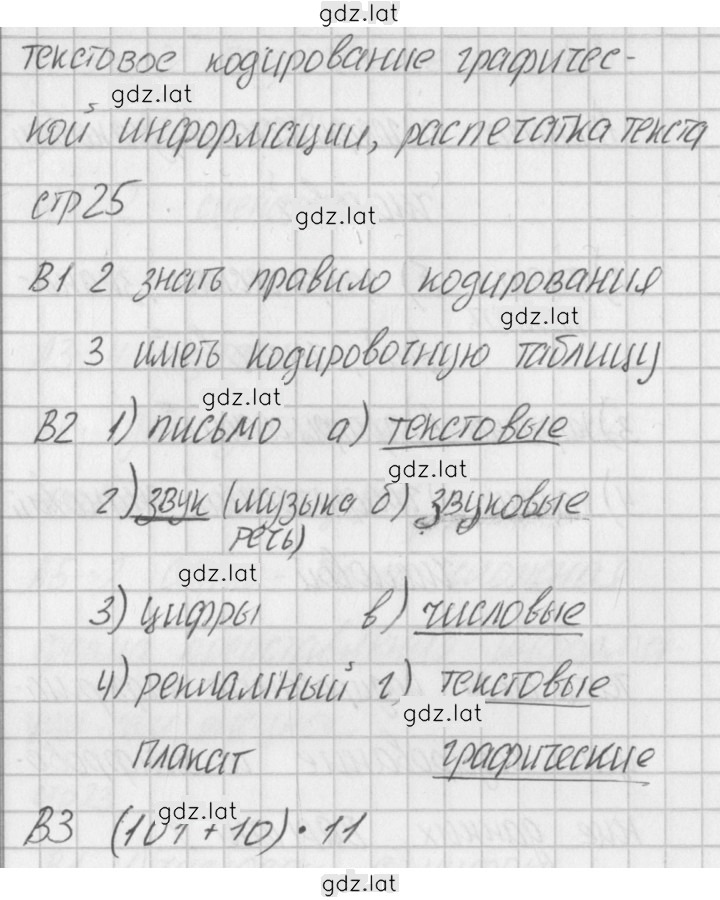 gdz.lat
текстовое кодирование графичес-
gdz.lat
кой информации, распечатка текста
стр 25
gdz.lat
В1 2 знать правило кодирования
gdz.lat
3 иметь кодировочную таблицу
gdz.lat
В2 1) письмо а) текстовые
gdz.lat
2) звук (музыка б) звуковые
речь)
gdz.lat
3) цифры в) числовые
4) рекламный г) текстовые
gdz.lat
плакат графические
gdz.lat
В3 (101 + 10) • 11
gdz.lat